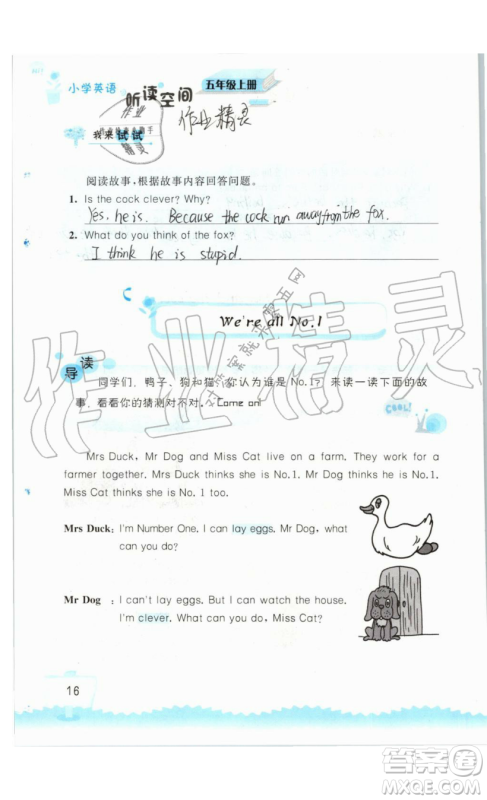 小学英语
听读空间
五年级上册
作业精灵
我来试试
阅读故事，根据故事内容回答问题。
1. Is the cock clever? Why?
Yes, he is. Because the cock run away from the fox.
2. What do you think of the fox?
I think he is stupid.
We're all No.1
导读
同学们，鸭子、狗和猫，你认为谁是No.1？来读一读下面的故
事，看看你的猜测对不对。Come on!
COOL!
Mrs Duck, Mr Dog and Miss Cat live on a farm. They work for a
farmer together. Mrs Duck thinks she is No.1. Mr Dog thinks he is No.1.
Miss Cat thinks she is No.1 too.
Mrs Duck: I'm Number One. I can lay eggs. Mr Dog, what
can you do?
Mr Dog : I can't lay eggs. But I can watch the house.
I'm clever. What can you do, Miss Cat?
16
作业精灵
答案圈
MXQE.COM